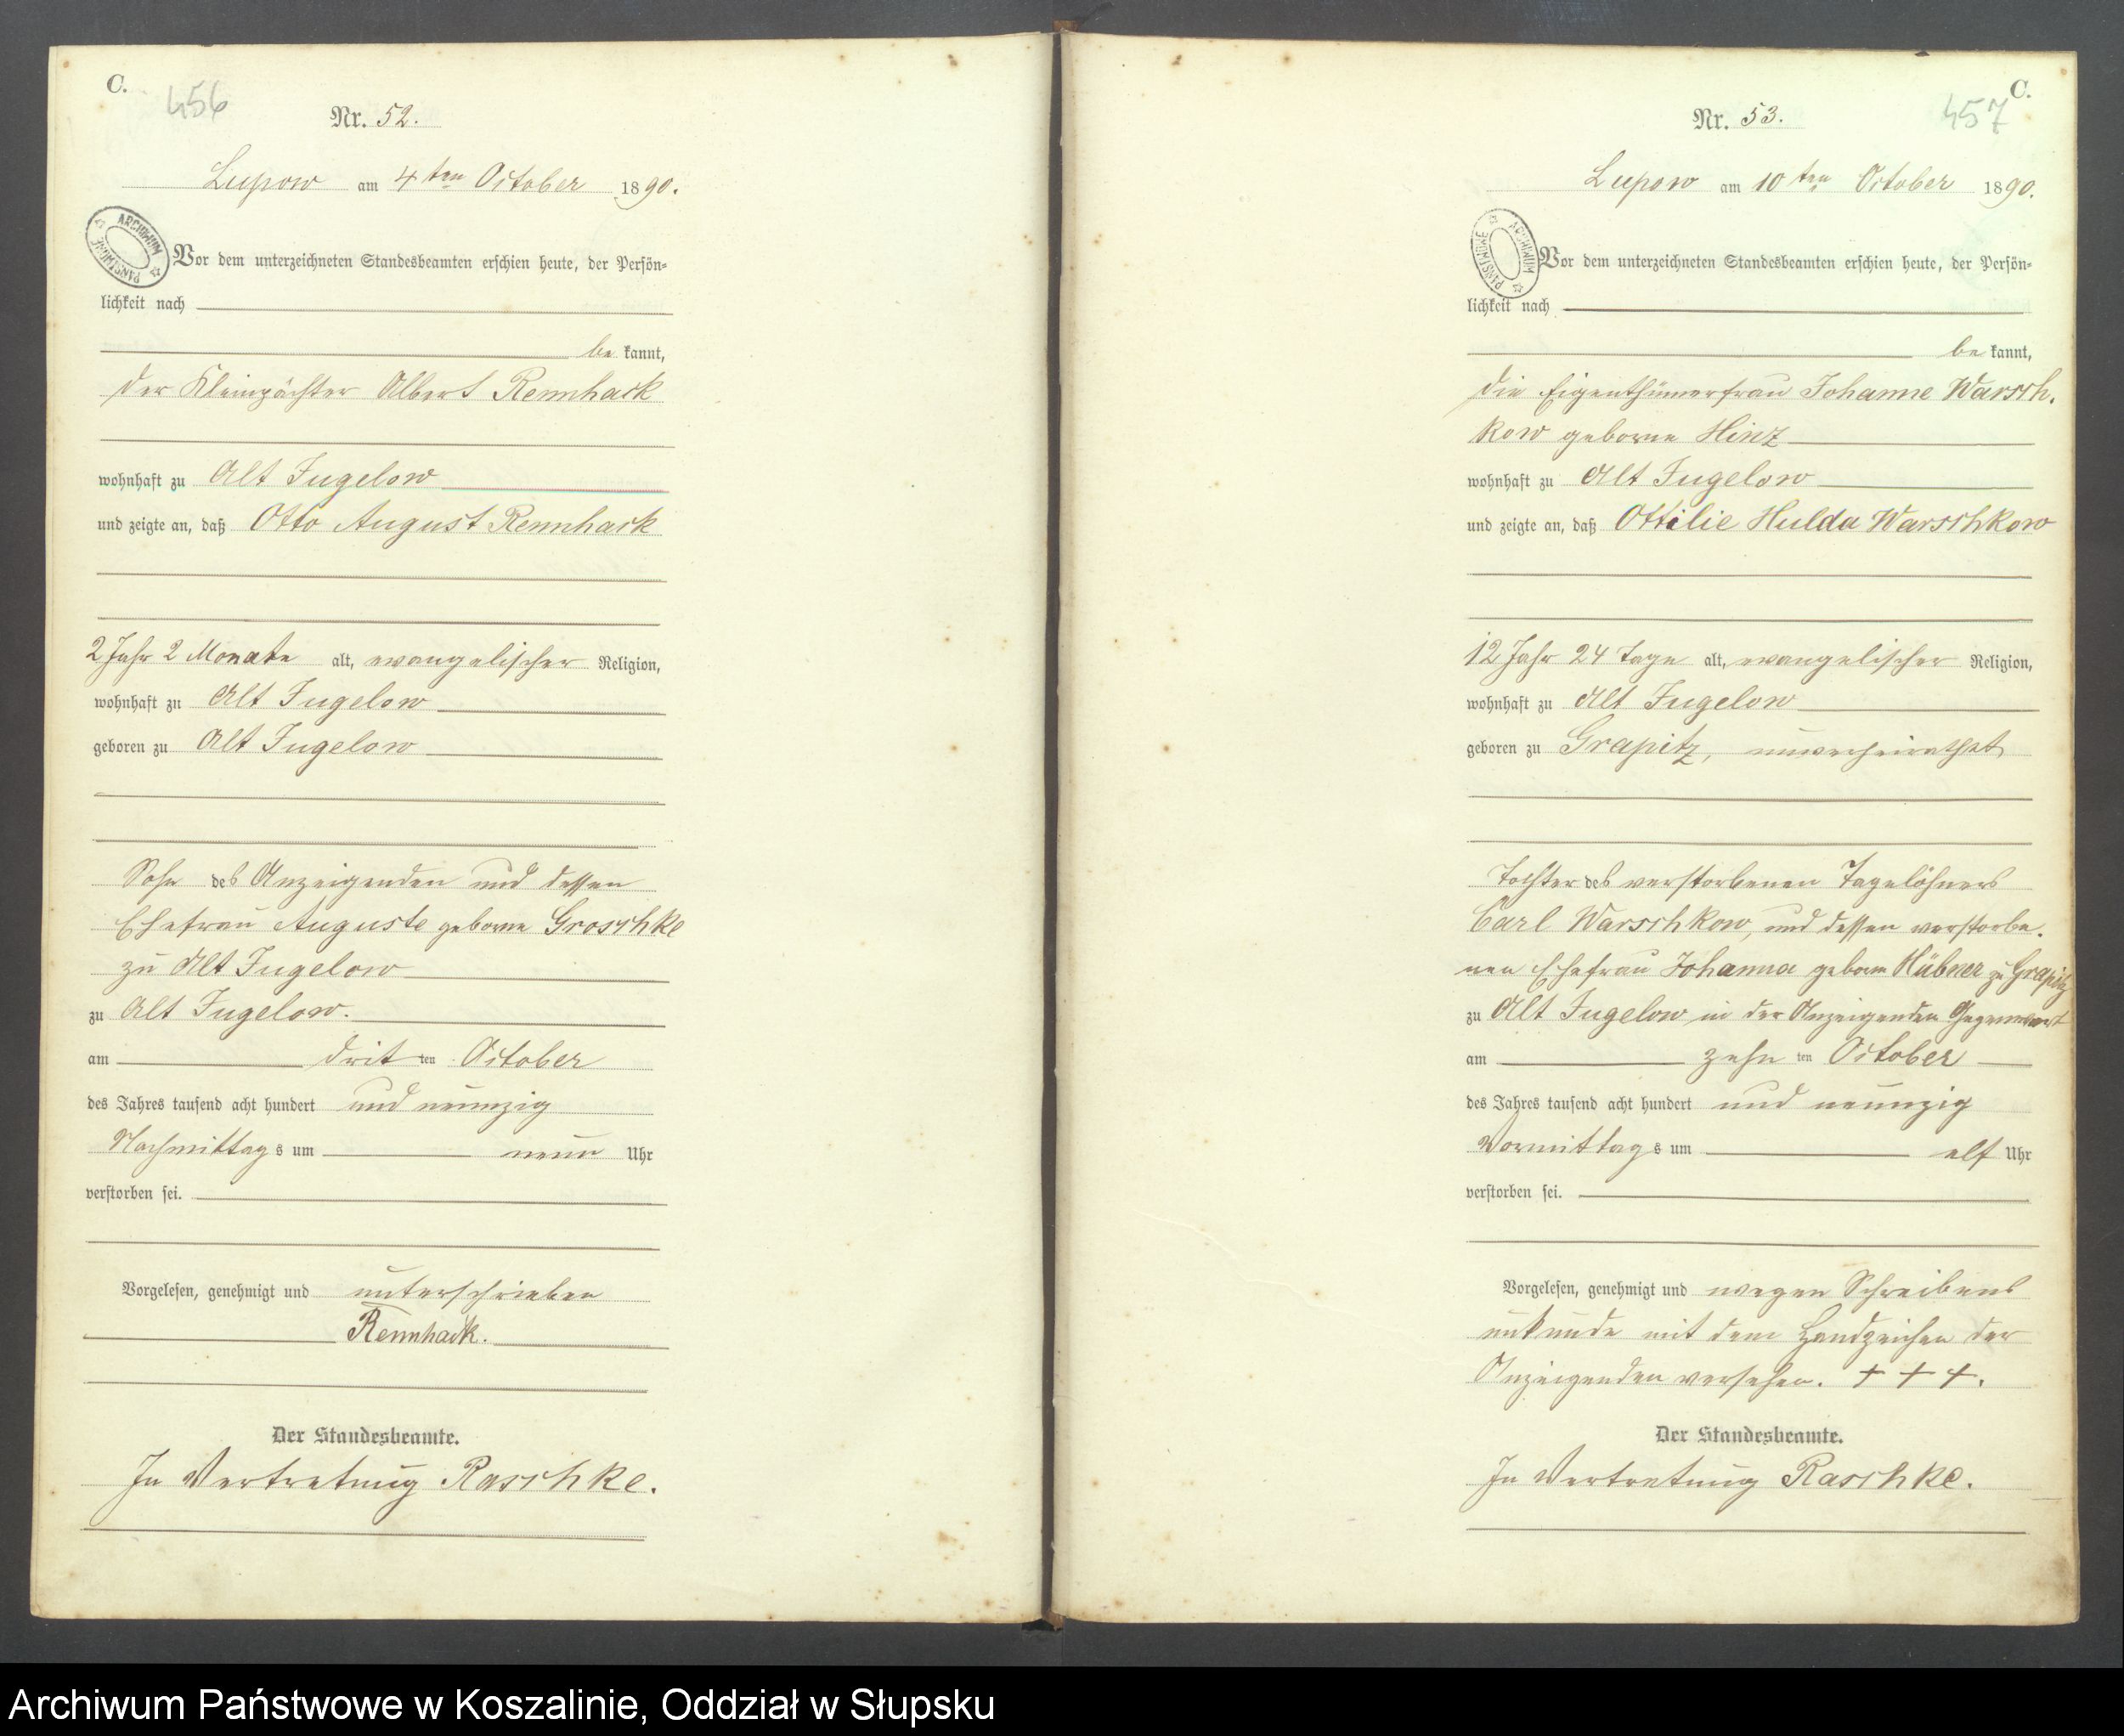 C.
456
Nr. 52.
Lupow am 4ten October 1890.
ARCHIWUM PAŃSTWOWE
Vor dem unterzeichneten Standesbeamten erschien heute, der Persön-
lichkeit nach
be kannt,
der Kleinpächter Albert Rennhack
wohnhaft zu Alt Jugelow
und zeigte an, daß Otto August Rennhack
2 Jahr 2 Monate alt, evangelischer Religion,
wohnhaft zu Alt Jugelow
geboren zu Alt Jugelow
Sohn des Anzeigenden und dessen
Ehefrau Auguste geborne Groschke
zu Alt Jugelow
zu Alt Jugelow.
am drit ten October
des Jahres tausend acht hundert und neunzig
Nachmittag s um neun Uhr
verstorben sei.
Vorgelesen, genehmigt und unterschrieben
Rennhack.
Der Standesbeamte.
In Vertretung Raschke.
C.
457
Nr. 53.
Lupow am 10ten October 1890.
ARCHIWUM PAŃSTWOWE
Vor dem unterzeichneten Standesbeamten erschien heute, der Persön-
lichkeit nach
be kannt,
die Eigenthümerfrau Johanne Warsch-
kow geborne Hinz
wohnhaft zu Alt Jugelow
und zeigte an, daß Ottilie Hulda Warschkow
12 Jahr 24 Tage alt, evangelischer Religion,
wohnhaft zu Alt Jugelow
geboren zu Grapitz, unverheirathet
Tochter des verstorbenen Tagelöhners
Carl Warschkow, und dessen verstorbe-
nen Ehefrau Johanna geborne Hübner zu Grapitz
zu Alt Jugelow in der Anzeigenden Gegenwart
am zehn ten October
des Jahres tausend acht hundert und neunzig
Vormittag s um elf Uhr
verstorben sei.
Vorgelesen, genehmigt und wegen Schreibens
unkunde mit dem Handzeichen der
Anzeigenden versehen. + + +.
Der Standesbeamte.
In Vertretung Raschke.
Archiwum Państwowe w Koszalinie, Oddział w Słupsku